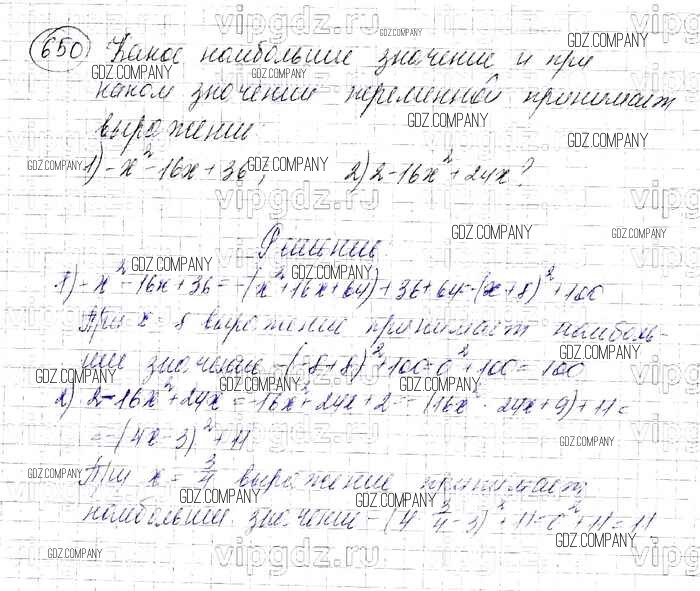 650 Какое наибольшее значение и при
каком значении переменной принимает
выражение
1) -x²-16x+36; 2) 2-16x²+24x?
Решение
1) -x²-16x+36=-(x²+16x+64)+36+64=-(x+8)²+100
При x=-8 выражение принимает наиболь-
шее значение -(-8+8)²+100=0²+100=100
2) 2-16x²+24x=-16x²+24x+2=-(16x²-24x+9)+11=
=-(4x-3)²+11
При x=3/4 выражение принимает
наибольшее значение -(4·3/4-3)²+11=0²+11=11
vipgdz.ru
GDZ.COMPANY